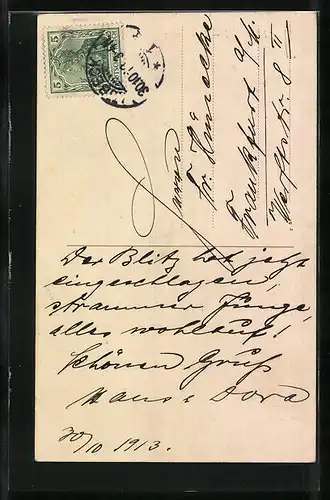 5 5
30.10.
Baron
Fr. Heinecke
Frankfurt a/M.
Der Blitz hat jetzt
eingeschlagen,
strammer Junge,
alles wohlauf!
Schönen Gruß
Hans & Dora
30/10 1913.